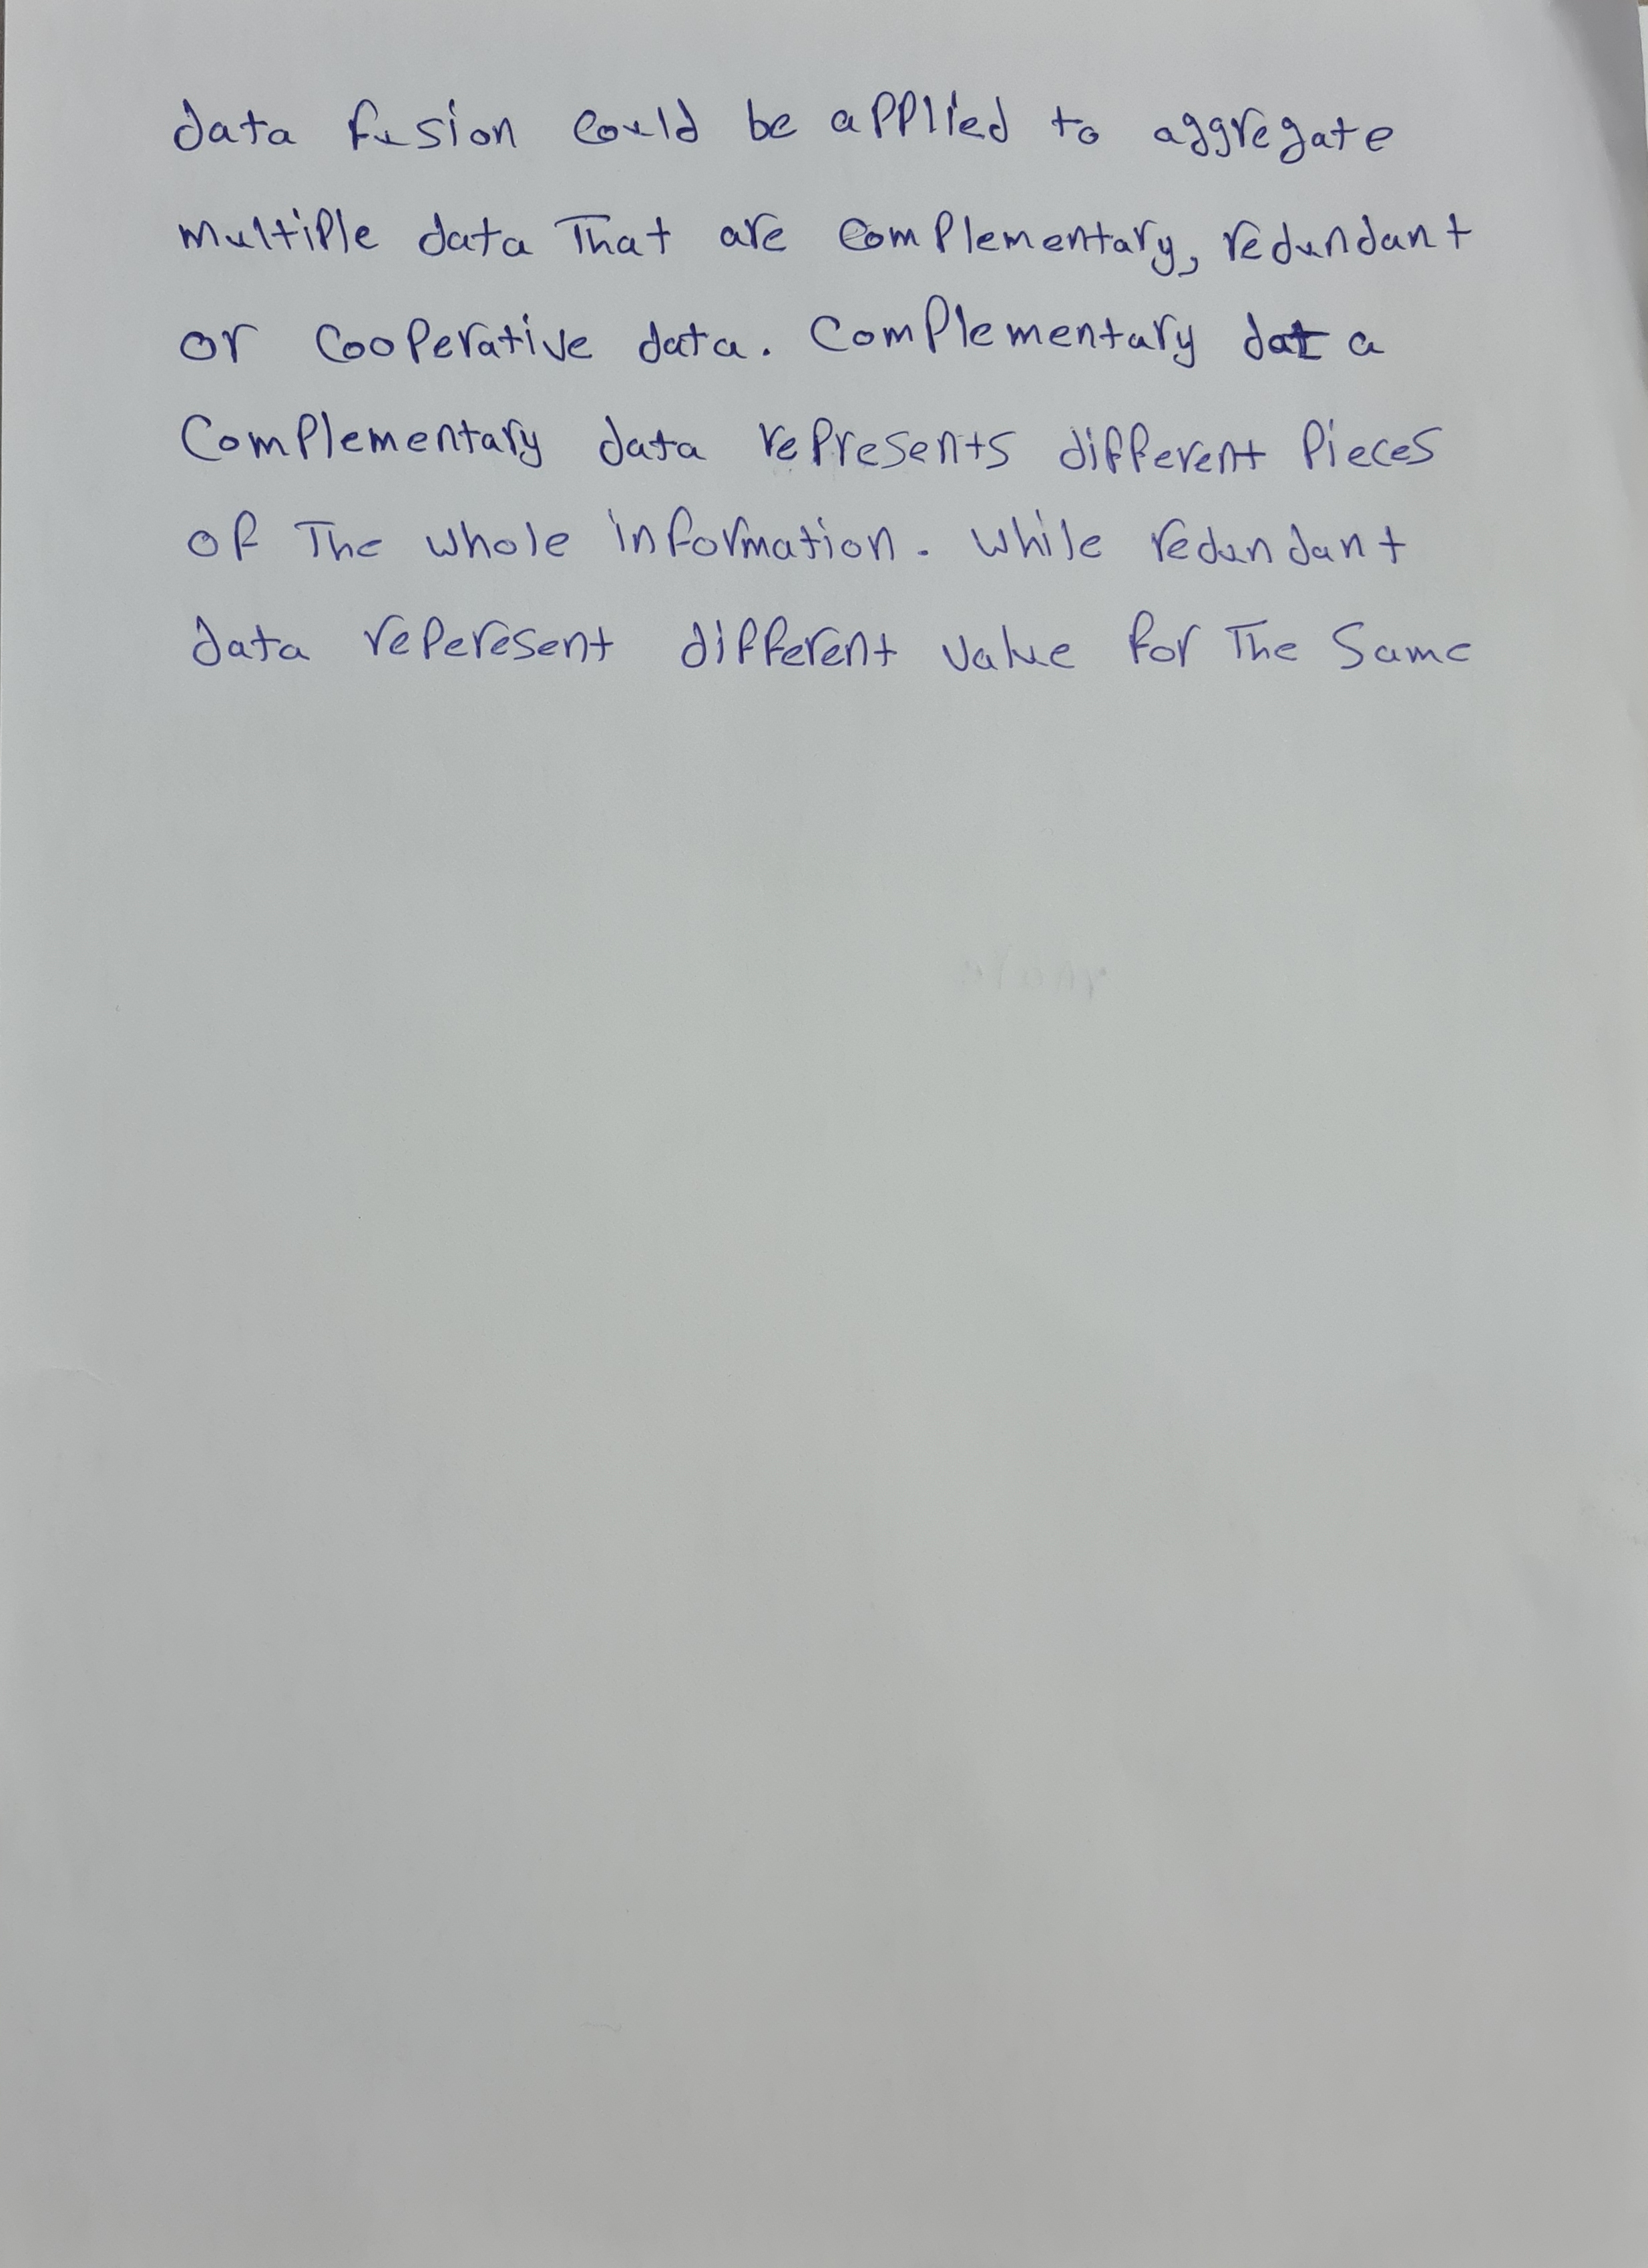 data fusion could be applied to aggregate
multiple data That are complementary, redundant
or cooperative data. Complementary data
Complementary data represents different pieces
of The whole information. while redundant
data reperesent different value for The same